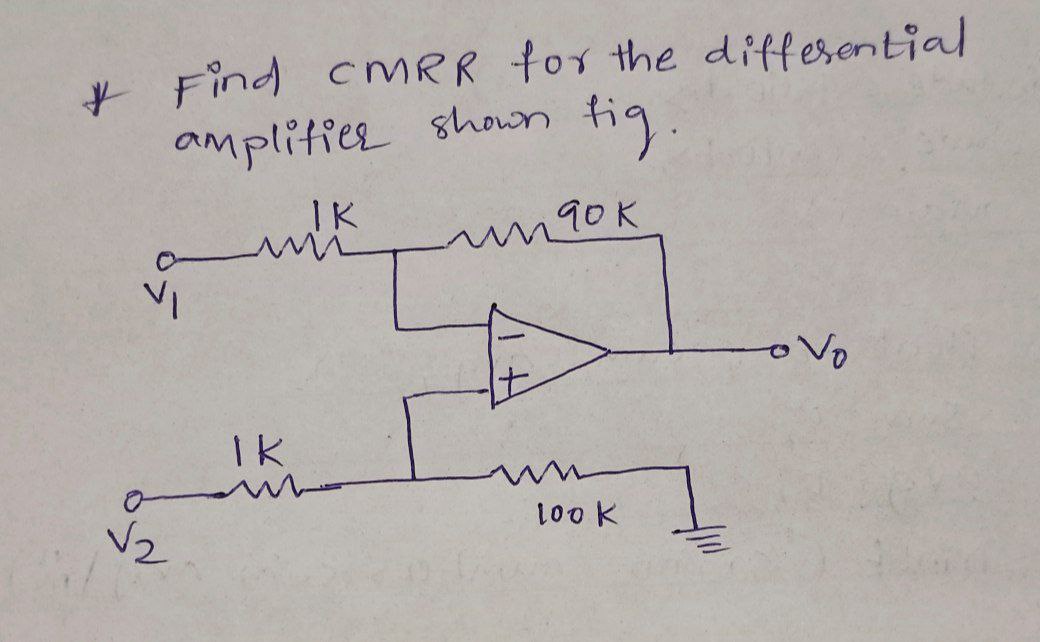 * Find CMRR for the differential
amplifier shown fig.
1K
90K
V1
-
+
Vo
1K
100K
V2